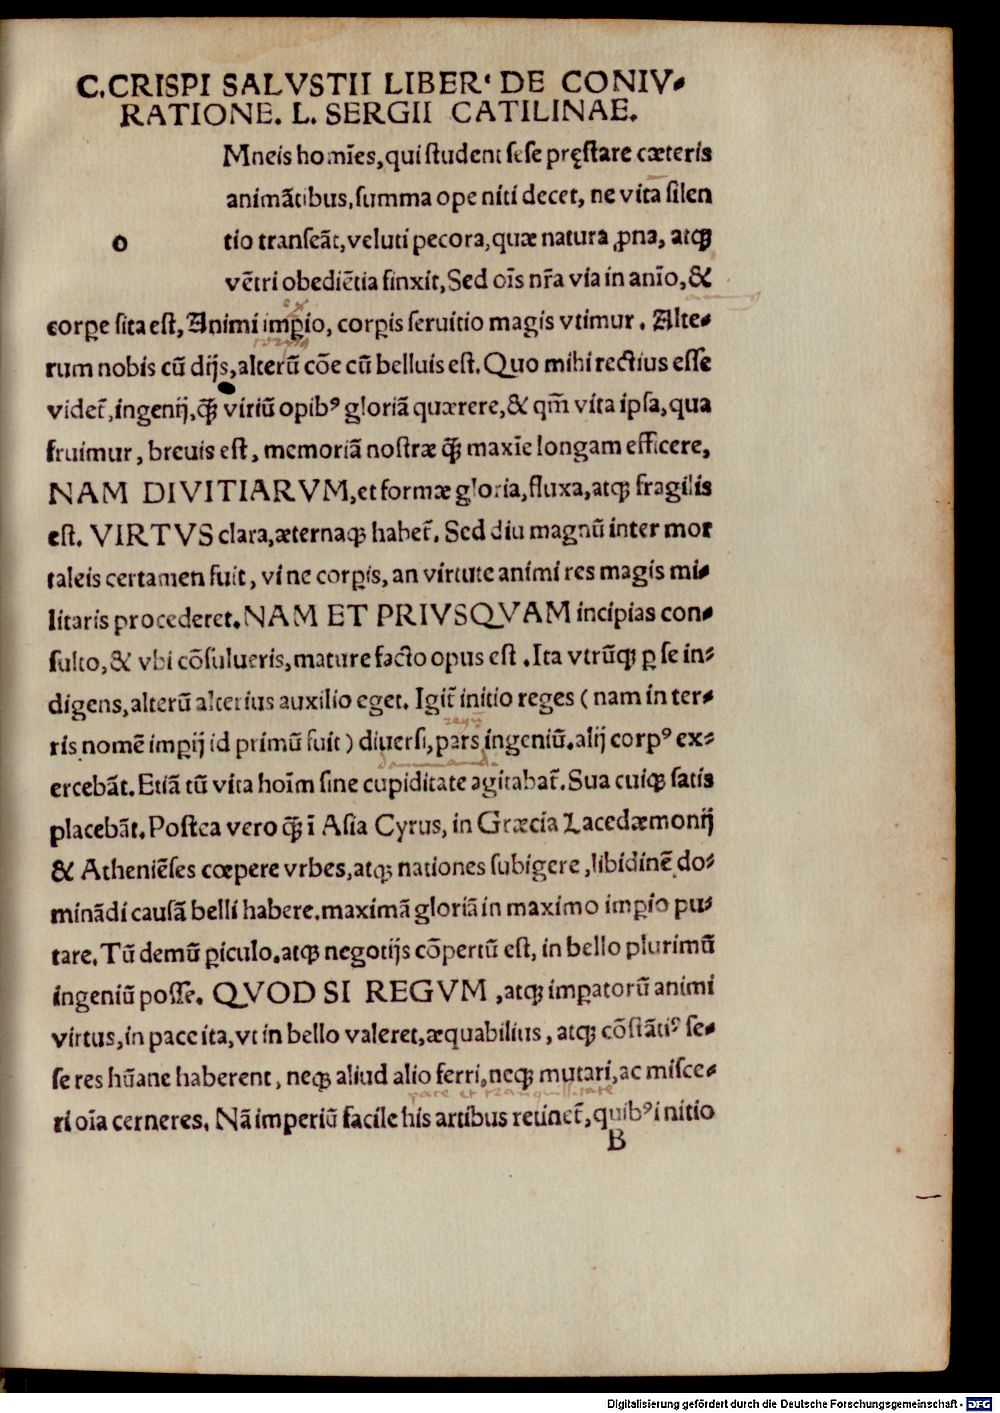 C. CRISPI SALVSTII LIBER· DE CONIV-
RATIONE. L. SERGII CATILINAE.
o
Mneis homīes, qui student sese pręstare cæteris
animātibus, summa ope niti decet, ne vitā silen
tio transeāt, veluti pecora, quæ natura ꝓna, atqꝫ
vētri obediētia finxit, Sed oīs nr̄a via in anīo, &
corꝑe sita est, Animi imꝑio, corꝑis seruitio magis vtimur. Alte-
rum nobis cū dijs, alterū cōe cū belluis est. Quo mihi rectius esse
videt̄, ingenij, qꝫ̄ viriū opibꝰ gloriā quærere, & qm̄ vita ipsa, qua
fruimur, breuis est, memoriā nostræ qꝫ̄ maxīe longam efficere,
NAM DIVITIARVM, et formæ gloria, fluxa, atqꝫ fragilis
est. VIRTVS clara, æternaqꝫ habet̄. Sed diu magnū inter mor
taleis certamen fuit, vi ne corꝑis, an virtute animi res magis mi-
litaris procederet. NAM ET PRIVSQVAM incipias con-
sulto, & vbi cōsulueris, mature facto opus est. Ita vtrūqꝫ ꝑ se in-
digens, alterū alterius auxilio eget. Igit̄ initio reges (nam in ter-
ris nomē imꝑij id primū fuit) diuersi, pars ingeniū. alij corpꝰ ex-
ercebāt. Etiā tū vita hoīm sine cupiditate agitabat̄. Sua cuiqꝫ satis
placebāt. Postea vero qꝫ̄ ī Asia Cyrus, in Græcia Lacedæmonij
& Atheniēses cœpere vrbes, atqꝫ nationes subigere, libidinē do-
minādi causā belli habere. maximā gloriā in maximo imꝑio pu-
tare. Tū demū ꝑiculo. atqꝫ negotijs cōpertū est, in bello plurimū
ingeniū posse. QVOD SI REGVM, atqꝫ imꝑatorū animi
virtus, in pace ita, vt in bello valeret, æquabilius, atqꝫ cōstātiꝰ se-
se res hūane haberent, neqꝫ aliud alio ferri, neqꝫ mutari, ac misce-
pace et tranquillitate
ri oīa cerneres. Nā imperiū facile his artibus retinet̄, quibꝰ initio
B
Digitalisierung gefördert durch die Deutsche Forschungsgemeinschaft - DFG